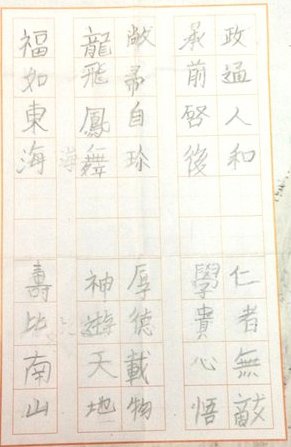 政通人和 仁者無敵
承前啓後 學貴心悟
敝帚自珍 厚德載物
龍飛鳳舞 神遊天地
福如東海 壽比南山